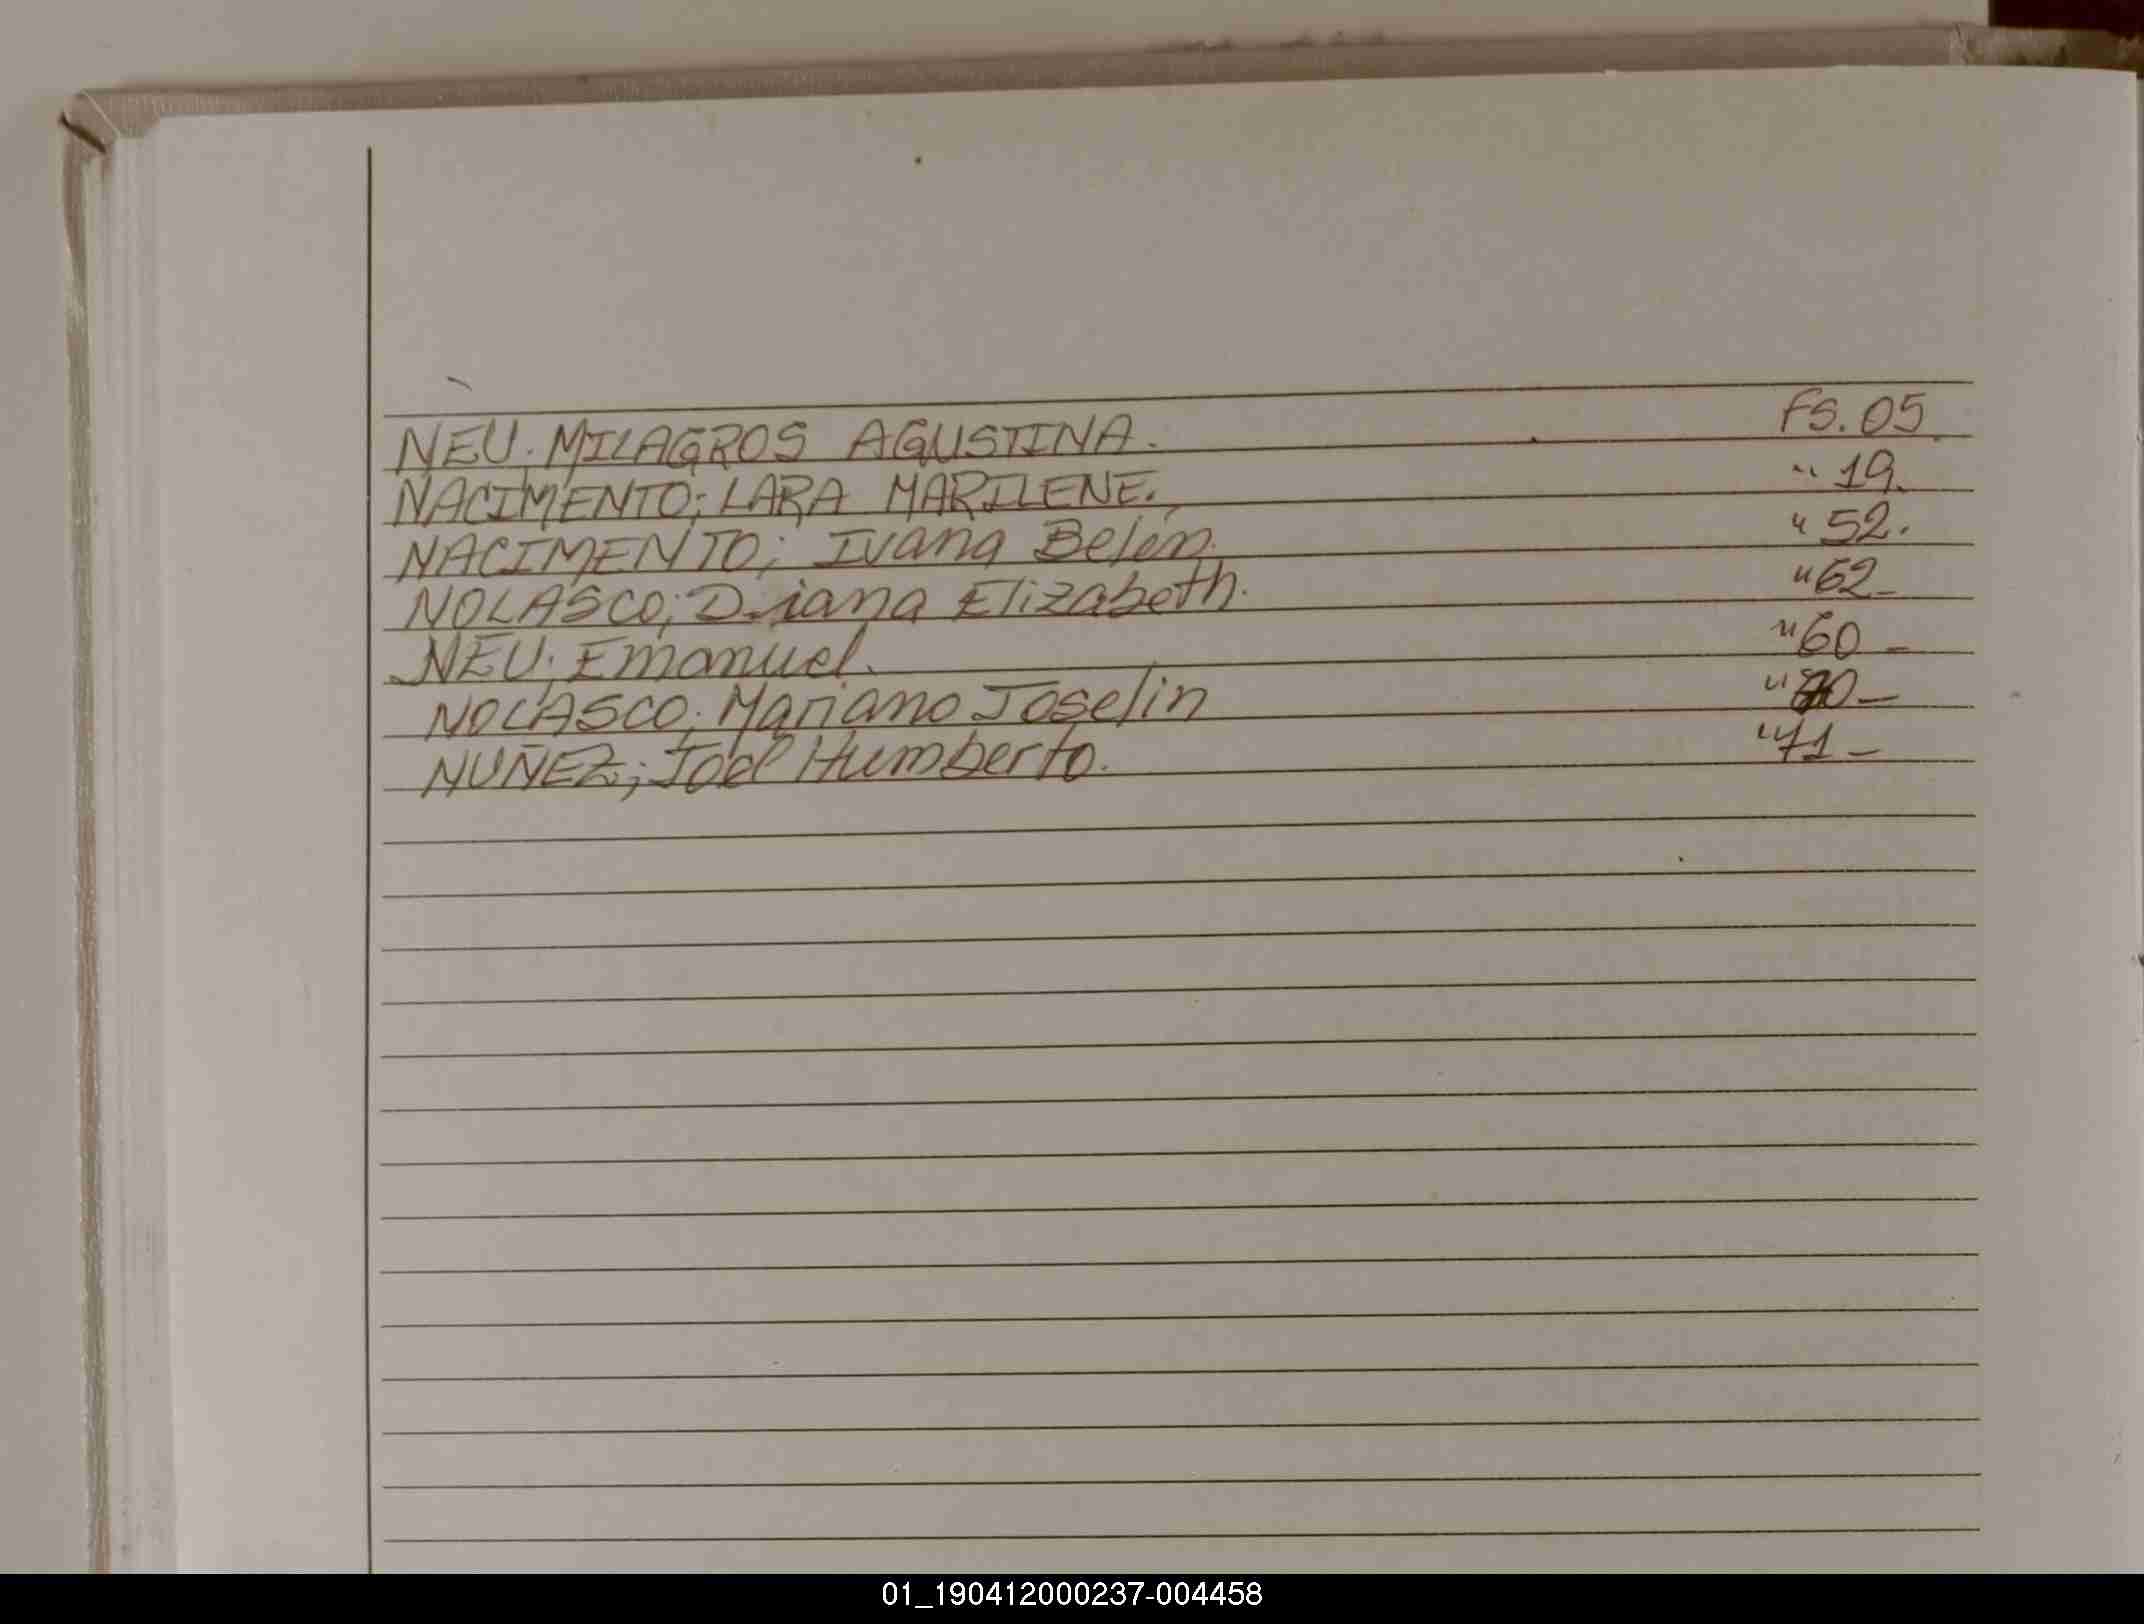 NEU. MILAGROS AGUSTINA. FS. 05
NACIMENTO; LARA MARILENE. " 19.
NACIMENTO; Ivana Belén. " 52.
NOLASCO; Diana Elizabeth. " 62-
NEU; Emanuel. " 60-
NOLASCO; Mariano Joselin " 70-
NUÑEZ; Joel Humberto. " 71-
01_190412000237-004458